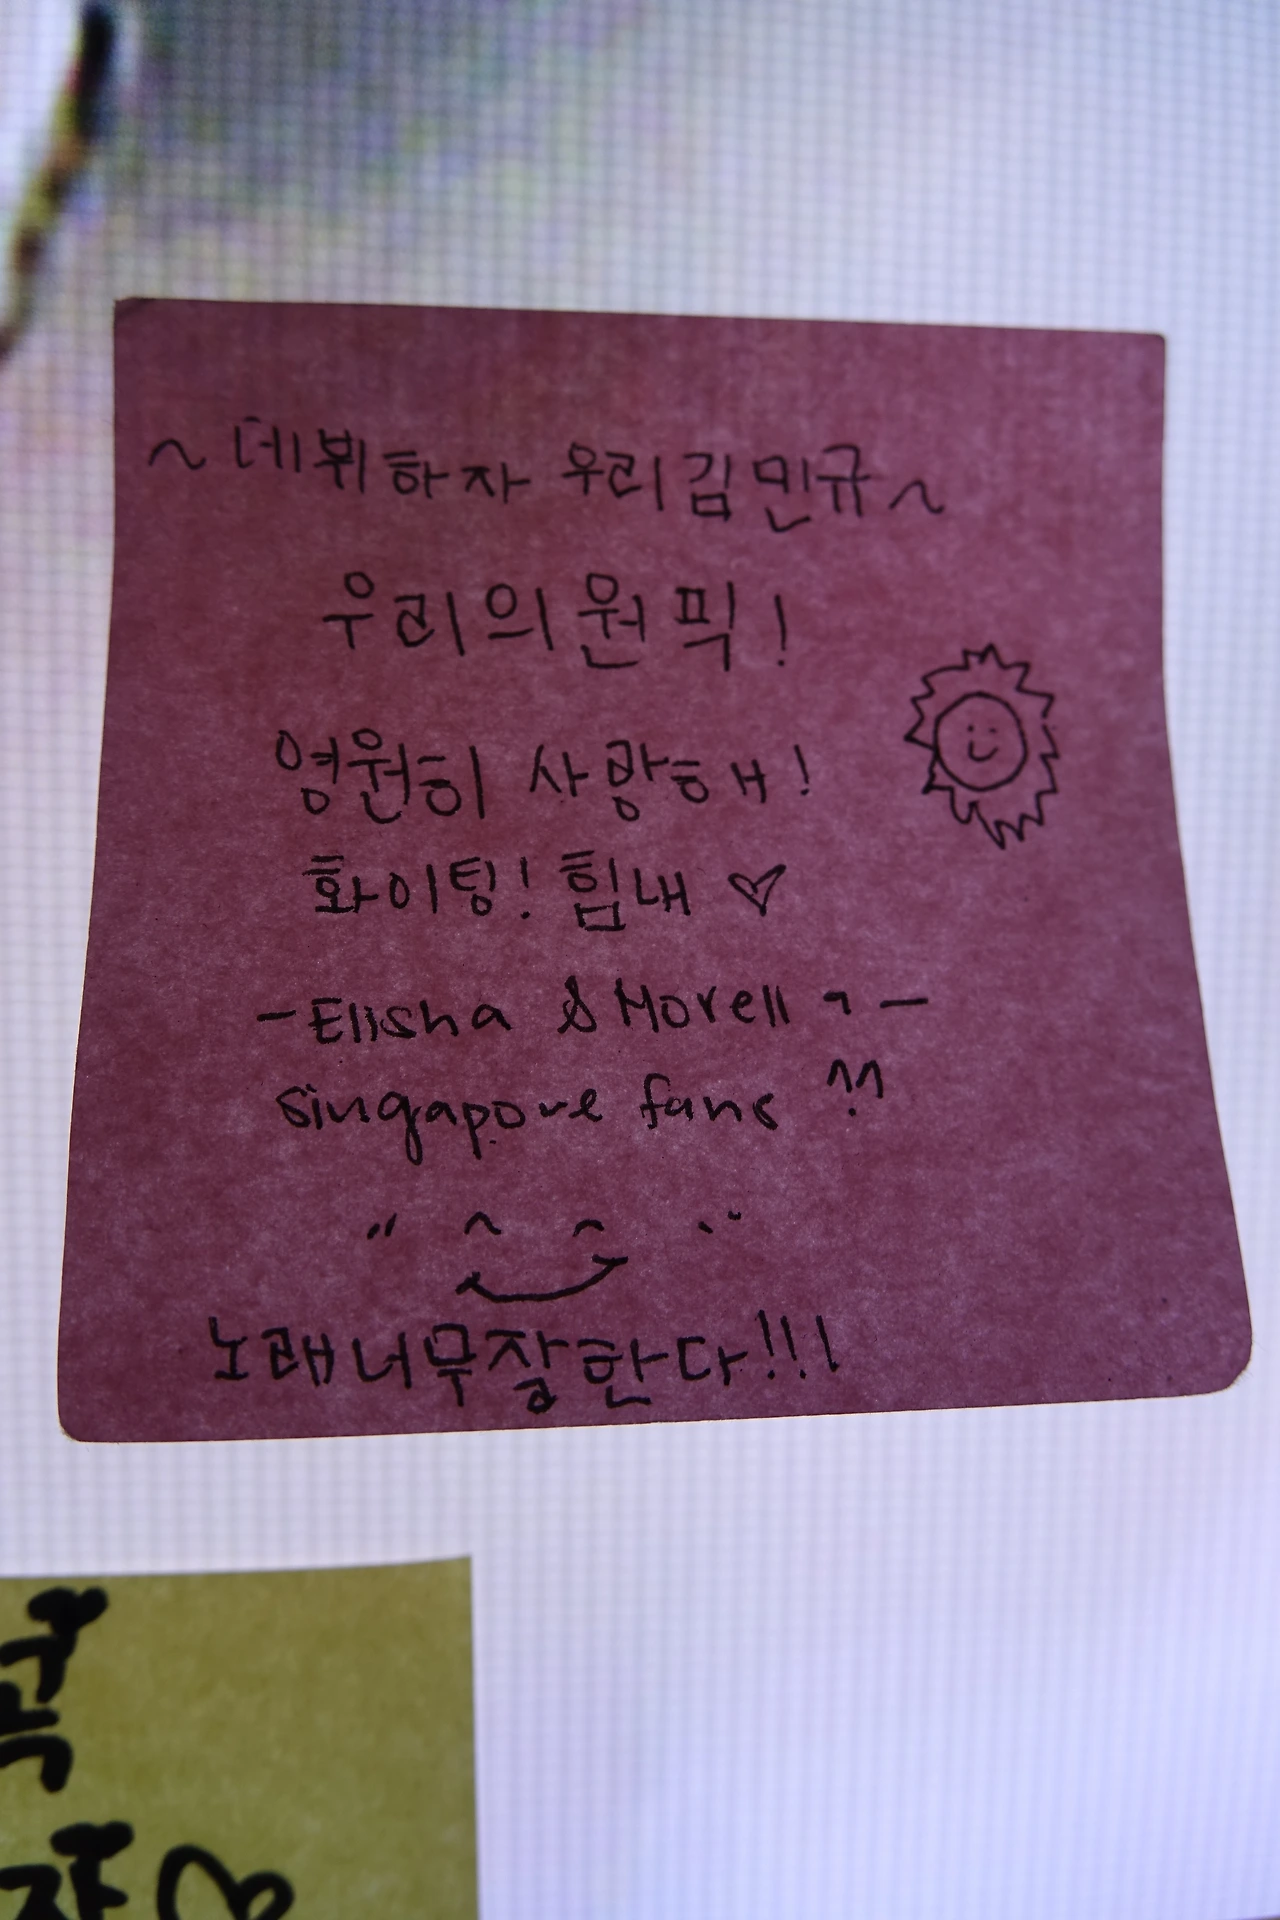 ~데뷔하자 우리김민규~
우리의원픽!
영원히 사랑해!
화이팅! 힘내 ♡
-Elisha & Morell ㄱ-
Singapore fans ^^
노래너무잘한다!!!